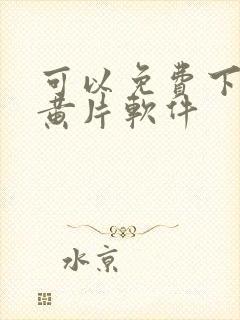 可以免費下
黄片軟件
水京